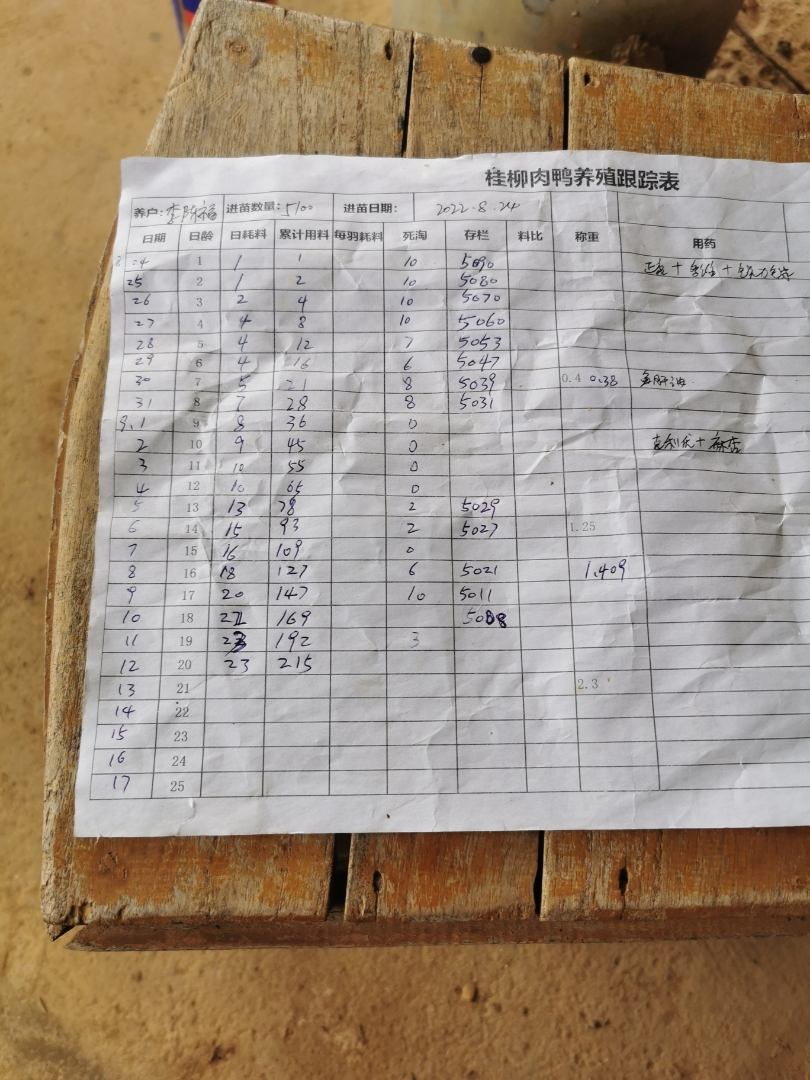 桂柳肉鸭养殖跟踪表
养户: 进苗数量: 5100 进苗日期: 2022.8.24
日期 日龄 日耗料 累计用料 每羽耗料 死淘 存栏 料比 称重 用药
8 24 1 1 1 10 5090
25 2 1 2 10 5080
26 3 2 4 10 5070
27 4 4 8 10 5060
28 5 4 12 7 5053
29 6 4 16 6 5047
30 7 5 21 8 5039 0.4 0.38 鱼肝油
31 8 7 28 8 5031
9.1 9 8 36 0
2 10 9 45 0
3 11 10 55 0
4 12 10 65 0
5 13 13 78 2 5029
6 14 15 93 2 5027 1.25
7 15 16 109 0
8 16 18 127 6 5021 1.409
9 17 20 147 10 5011
10 18 22 169 5008
11 19 23 192 3
12 20 23 215
13 21 2.3
14 22
15 23
16 24
17 25